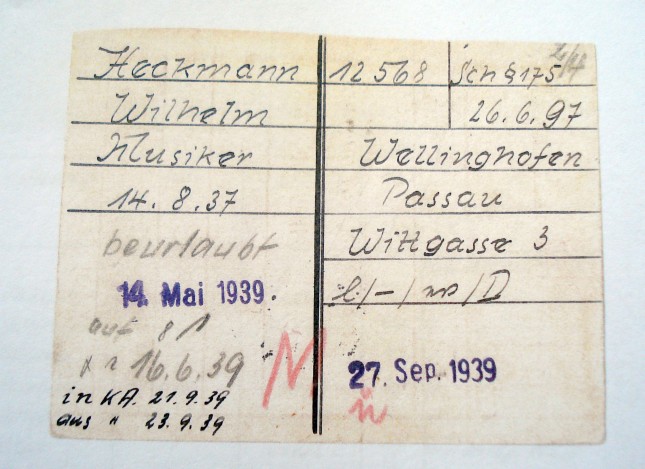 Heckmann
Wilhelm
Musiker
14. 8. 37
beurlaubt
14. Mai 1939.
auf 81
16.6.39
in KA. 21.9.39
aus " 23.9.39
12568
Sch § 175
26. 6. 97
Wellinghofen
Passau
Wittgasse 3
l./-/ /D
27. Sep. 1939